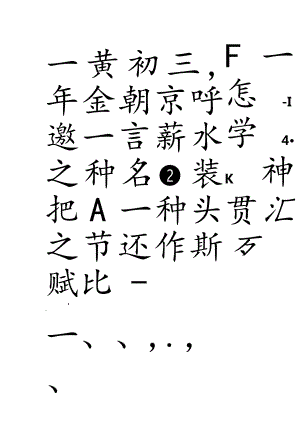 一黄初三,F 一
年金朝京呼怎 -I
邀一言薪水学 4•
之种名❷装K 神
把A一种头贯汇
之节还作斯歹
赋比 -
一、、,.,
、